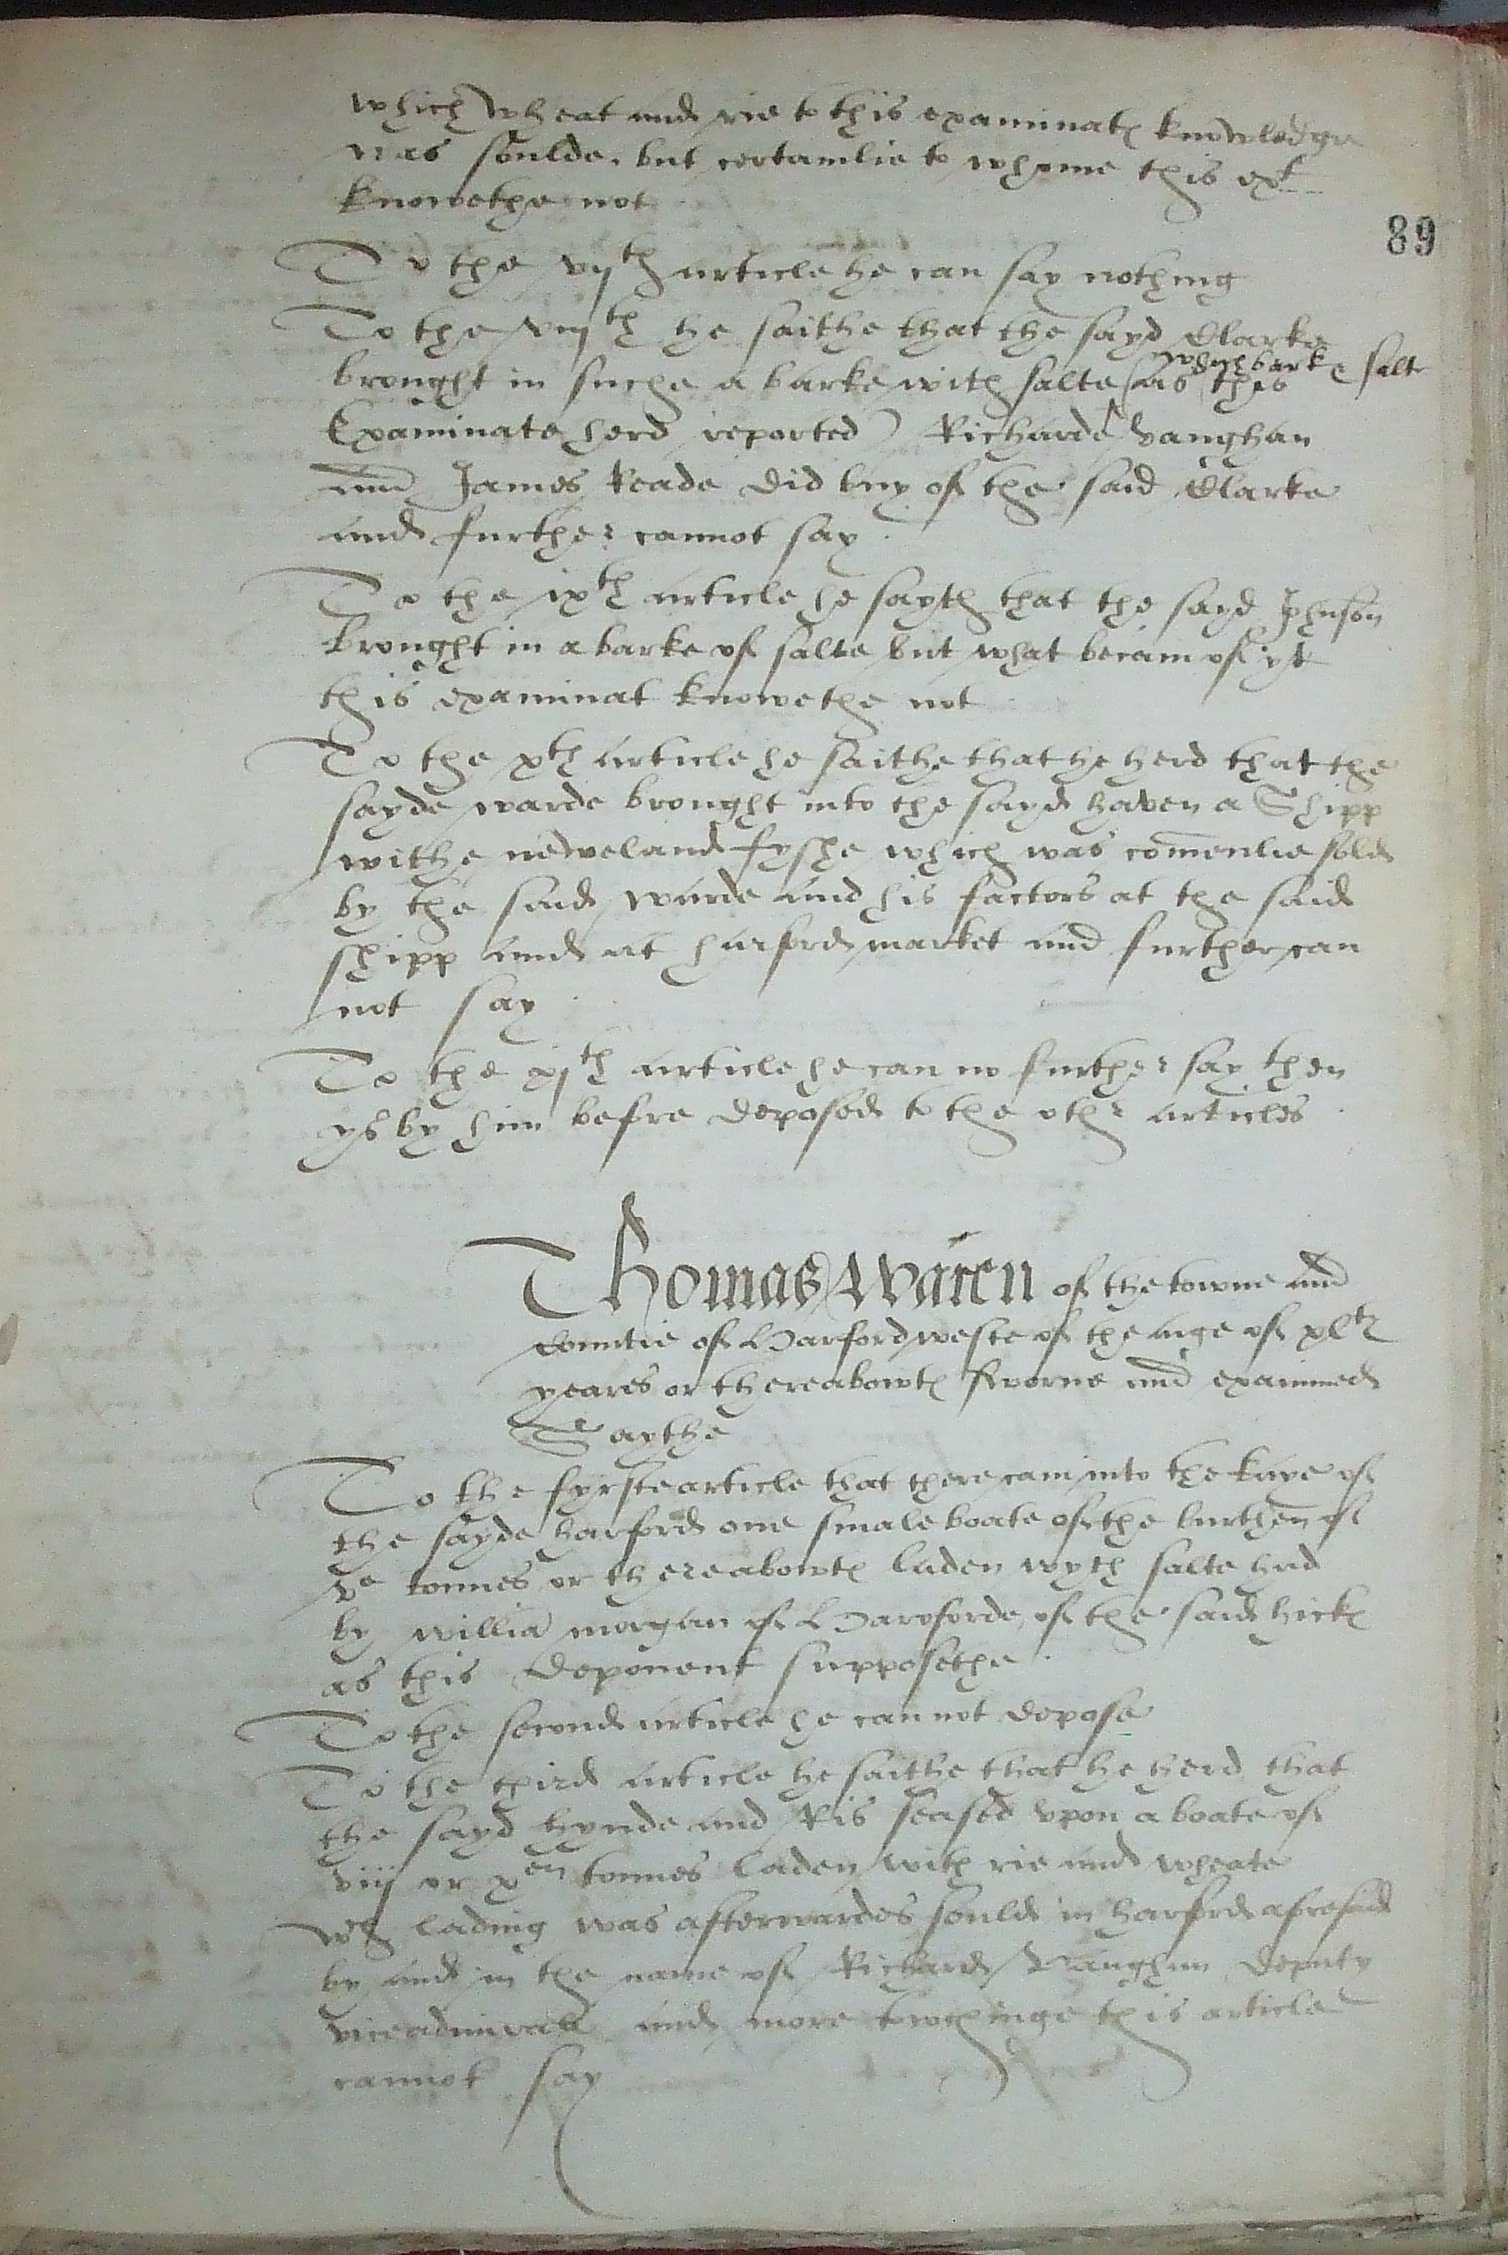 which wheat and rie to this examinat(es) knowledge
was soulde, but certainlie to whome this ex(t)
knowethe not
89
To the vij(th) article he can say nothing
To the viij(th) he saithe that the sayd Clarke
which bark & salt
brought in suche a barke with salte (as this
Examinate herd reported) Richarde Vaughan
and James Reade did buy of the said Clarke
and further cannot say
To the ix(th) article he sayth that the sayd Johnson
brought in a barke of salte but what becam of yt
this examinat knowethe not
To the x(th) article he saithe that he herd that the
sayde warde brought into the sayd haven a Shipp
withe neweland fyshe which was comenlie sold
by the said warde and his factors at the said
shipp and at harford market and further can
not say
To the xj(th) article he can no further say then
ys by him befre deposed to the oth(r) articles
Thomas Waren of the towne and
countie of Harfordweste of the aige of xl(tie)
yeares or thereabowt(es) sworne and examined
Saythe
To the fyrste article that there cam into the kaye of
the sayde harford one smale boate of the burthen of
v(e) tonnes or thereabowt(es) laden wyth salte had
by willia(m) morgan of Harforde of the said hick(es)
as this deponent supposethe
To the second article he can not depose
To the third article he saithe that he herd that
the sayd hynde and Ris seased vpon a boate of
viij or x(en) tonnes laden with rie and wheate
w(ch) lading was afterwardes sould in harford aforesaid
by and in the name of Richard Vaughan deputy
viceadmirall and more towchinge this article
cannot say